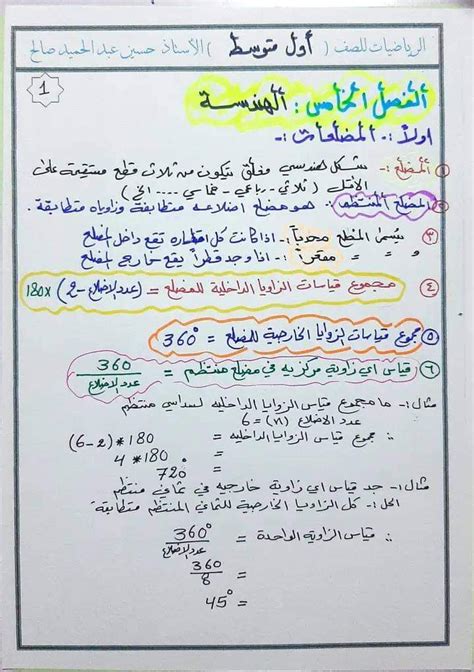 الرياضيات للصف ( أول متوسط ) الأستاذ حسين عبد الحميد صالح
1
الفصل الخامس : الهندسة
اولاً :- المضلعات :-
① المضلع : شكل هندسي مغلق يتكون من ثلاث قطع مستقيمة على
الأقل ( ثلاثي - رباعي - خماسي .... الخ )
② المضلع المنتظم : هو مضلع اضلاعه متطابقة وزواياه متطابقة .
③ يسمى المضلع محدباً :- اذا كانت كل اقطاره تقع داخل المضلع
" " مقعراً :- اذا وجد قطراً يقع خارج المضلع
④ مجموع قياسات الزوايا الداخلية للمضلع = (عدد الاضلاع - 2) × 180
⑤ مجموع قياسات الزوايا الخارجية للمضلع = 360°
⑥ قياس اي زاوية مركزيه في مضلع منتظم = 360 / عدد الاضلاع
مثال :- ما مجموع قياس الزوايا الداخليه لسداسي منتظم
عدد الاضلاع (n) = 6
∴ مجموع قياس الزوايا الداخليه = (6-2)*180
= 4 * 180
= 720°
مثال :- جد قياس اي زاوية خارجيه في ثماني منتظم
الحل :- كل الزاويا الخارجية للثماني المنتظم متطابقة
∴ قياس الزاوية الواحدة = 360° / عدد الاضلاع
= 360 / 8
= 45°